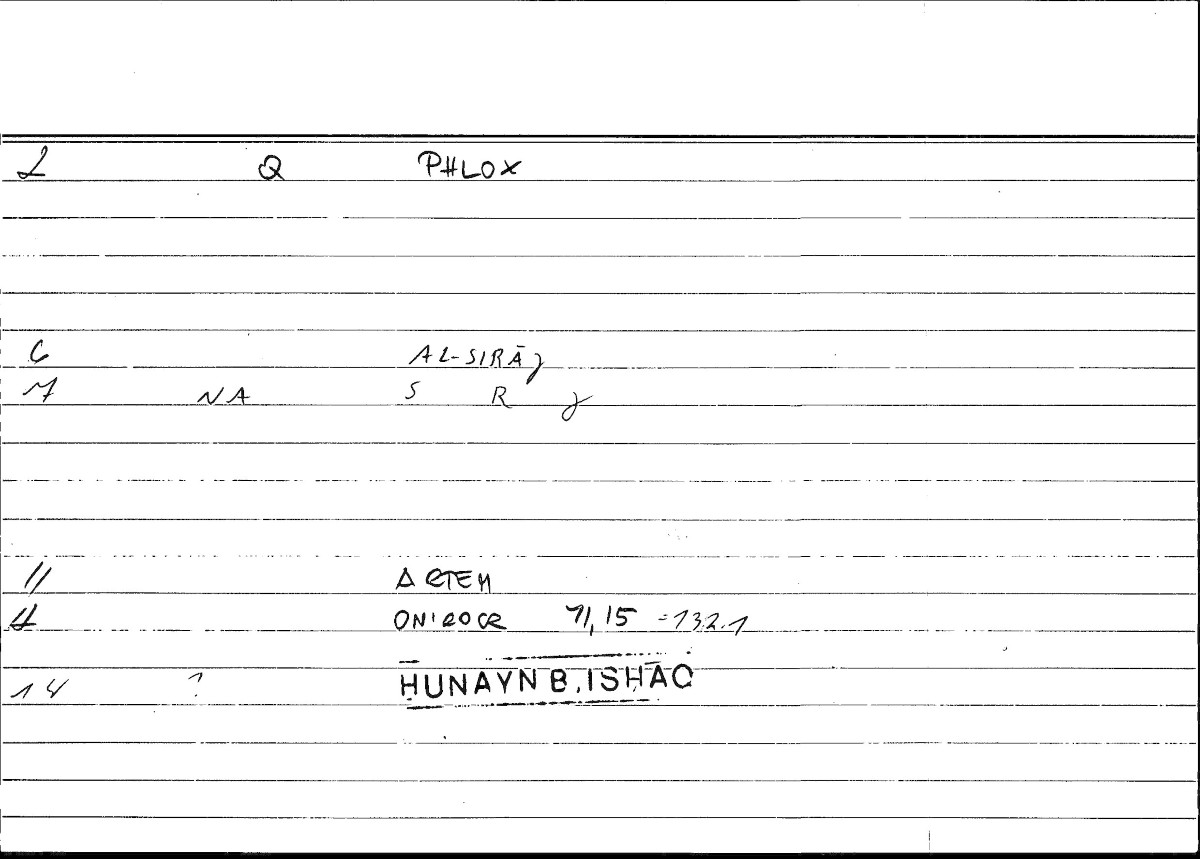 2 Q PHLOX
6 AL-SIRĀJ
7 NA S R J
11 ARTEM
ONIROCR 71,15 =132.1
14 ? HUNAYN B. ISHĀQ